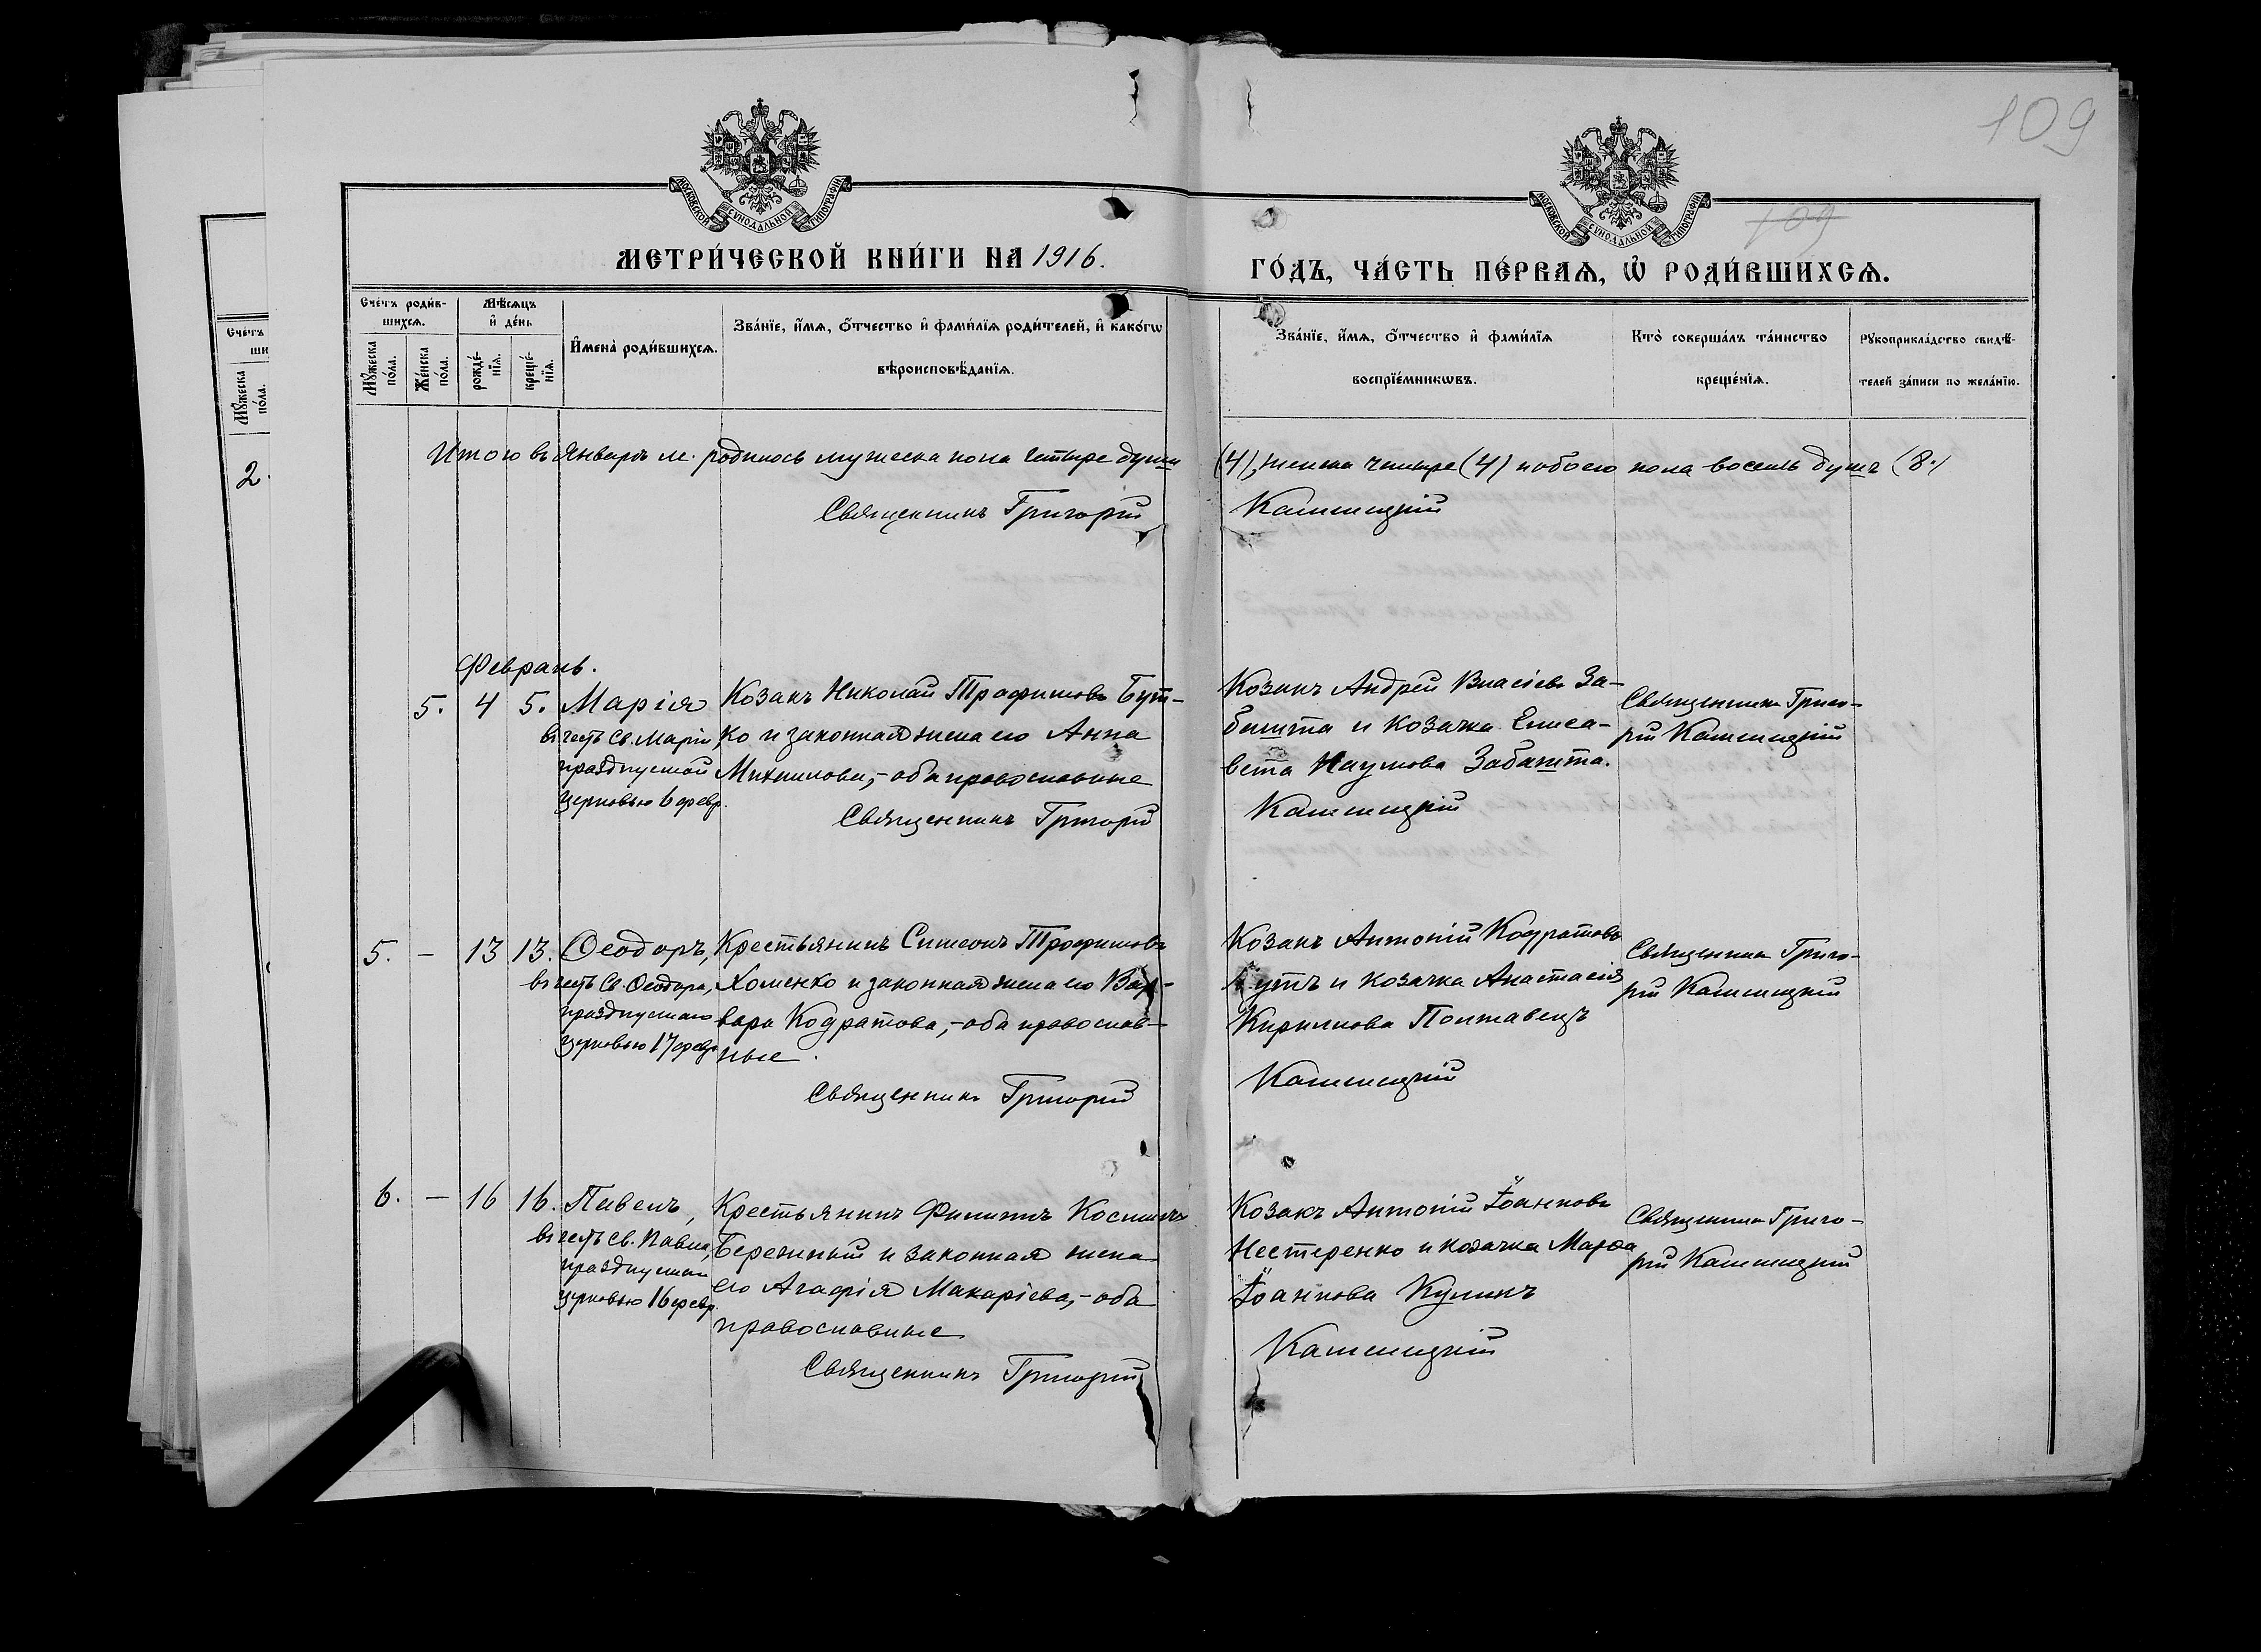 109
109
МОСКОВСКОЙ СѴНОДАЛЬНОЙ ТИПОГРАФІИ
МОСКОВСКОЙ СѴНОДАЛЬНОЙ ТИПОГРАФІИ
МЕТРИ́ЧЕСКОЙ КНИ́ГИ НА 1916.
ГО́ДЪ, ЧА́СТЬ ПЕ́РВАѦ, Ѡ҆ РОДИ́ВШИХСѦ.
Сче́тъ роди́в-
шихсѧ.
Мѣ́сѧцъ
и҆ де́нь
Мꙋ́жеска по́ла.
Же́нска по́ла.
рожде́-нїѧ.
креще́-нїѧ.
И҆мена̀ роди́вшихсѧ.
Зва́нїе, и҆́мѧ, ѻ҆́тчество и҆ фами́лїѧ роди́телей, и҆ како́гѡ
вѣроисповѣ́данїѧ.
Зва́нїе, и҆́мѧ, ѻ҆́тчество и҆ фами́лїѧ
воспрїе́мникѡвъ.
Кто̀ соверша́лъ та́инство
креще́нїѧ.
Рꙋкоприкла́дство свидѣ́-
телей за́писи по жела́нїю.
Сче́тъ
ши
Мꙋ́жеска по́ла.
2.
Итого въ Январѣ м. родилось мужеска пола четыре души (4), женска четыре (4) и обоего пола восемь душъ (8.)
Священникъ Григорій Кашшицкій
Февраль.
5. 4 5. Марія
въ честь Св. Маріи,
празднуемой
церковью 6 февр.
Козакъ Николай Трофимовъ Бут-
ко и законная жена его Анна
Михаилова,- оба православные
Священникъ Григорій
Козакъ Андрей Власіевъ За-
башта и козачка Елиса-
вета Наумова Забашта.
Кашшицкій
Священникъ Григо-
рій Кашшицкій
5. - 13 13. Ѳеодоръ,
въ честь Св. Ѳеодора,
празднуемаго
церковью 17 февр.
Крестьянинъ Симеонъ Трофимовъ
Хоменко и законная жена его Вар-
вара Кодратова,- оба православ-
ные.
Священникъ Григорій
Козакъ Антоній Кодратовъ
и козачка Анастасія
Кириллова Полтавецъ
Кашшицкій
Священникъ Григо-
рій Кашшицкій
6. - 16 16. Павелъ,
въ честь Св. Павла,
празднуемаго
церковью 16 февр.
Крестьянинъ Филиппъ Косминъ
Бережный и законная жена
его Агафія Макаріева,- оба
православные
Священникъ Григорій
Козакъ Антоній Іоанновъ
Нестеренко и козачка Марѳа
Іоаннова Куликъ
Кашшицкій
Священникъ Григо-
рій Кашшицкій